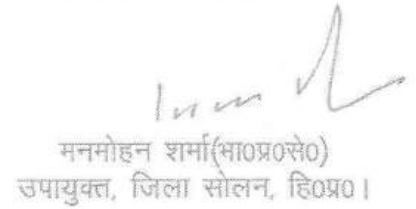 मनमोहन शर्मा(भा0प्र0से0)
उपायुक्त, जिला सोलन, हि0प्र0।